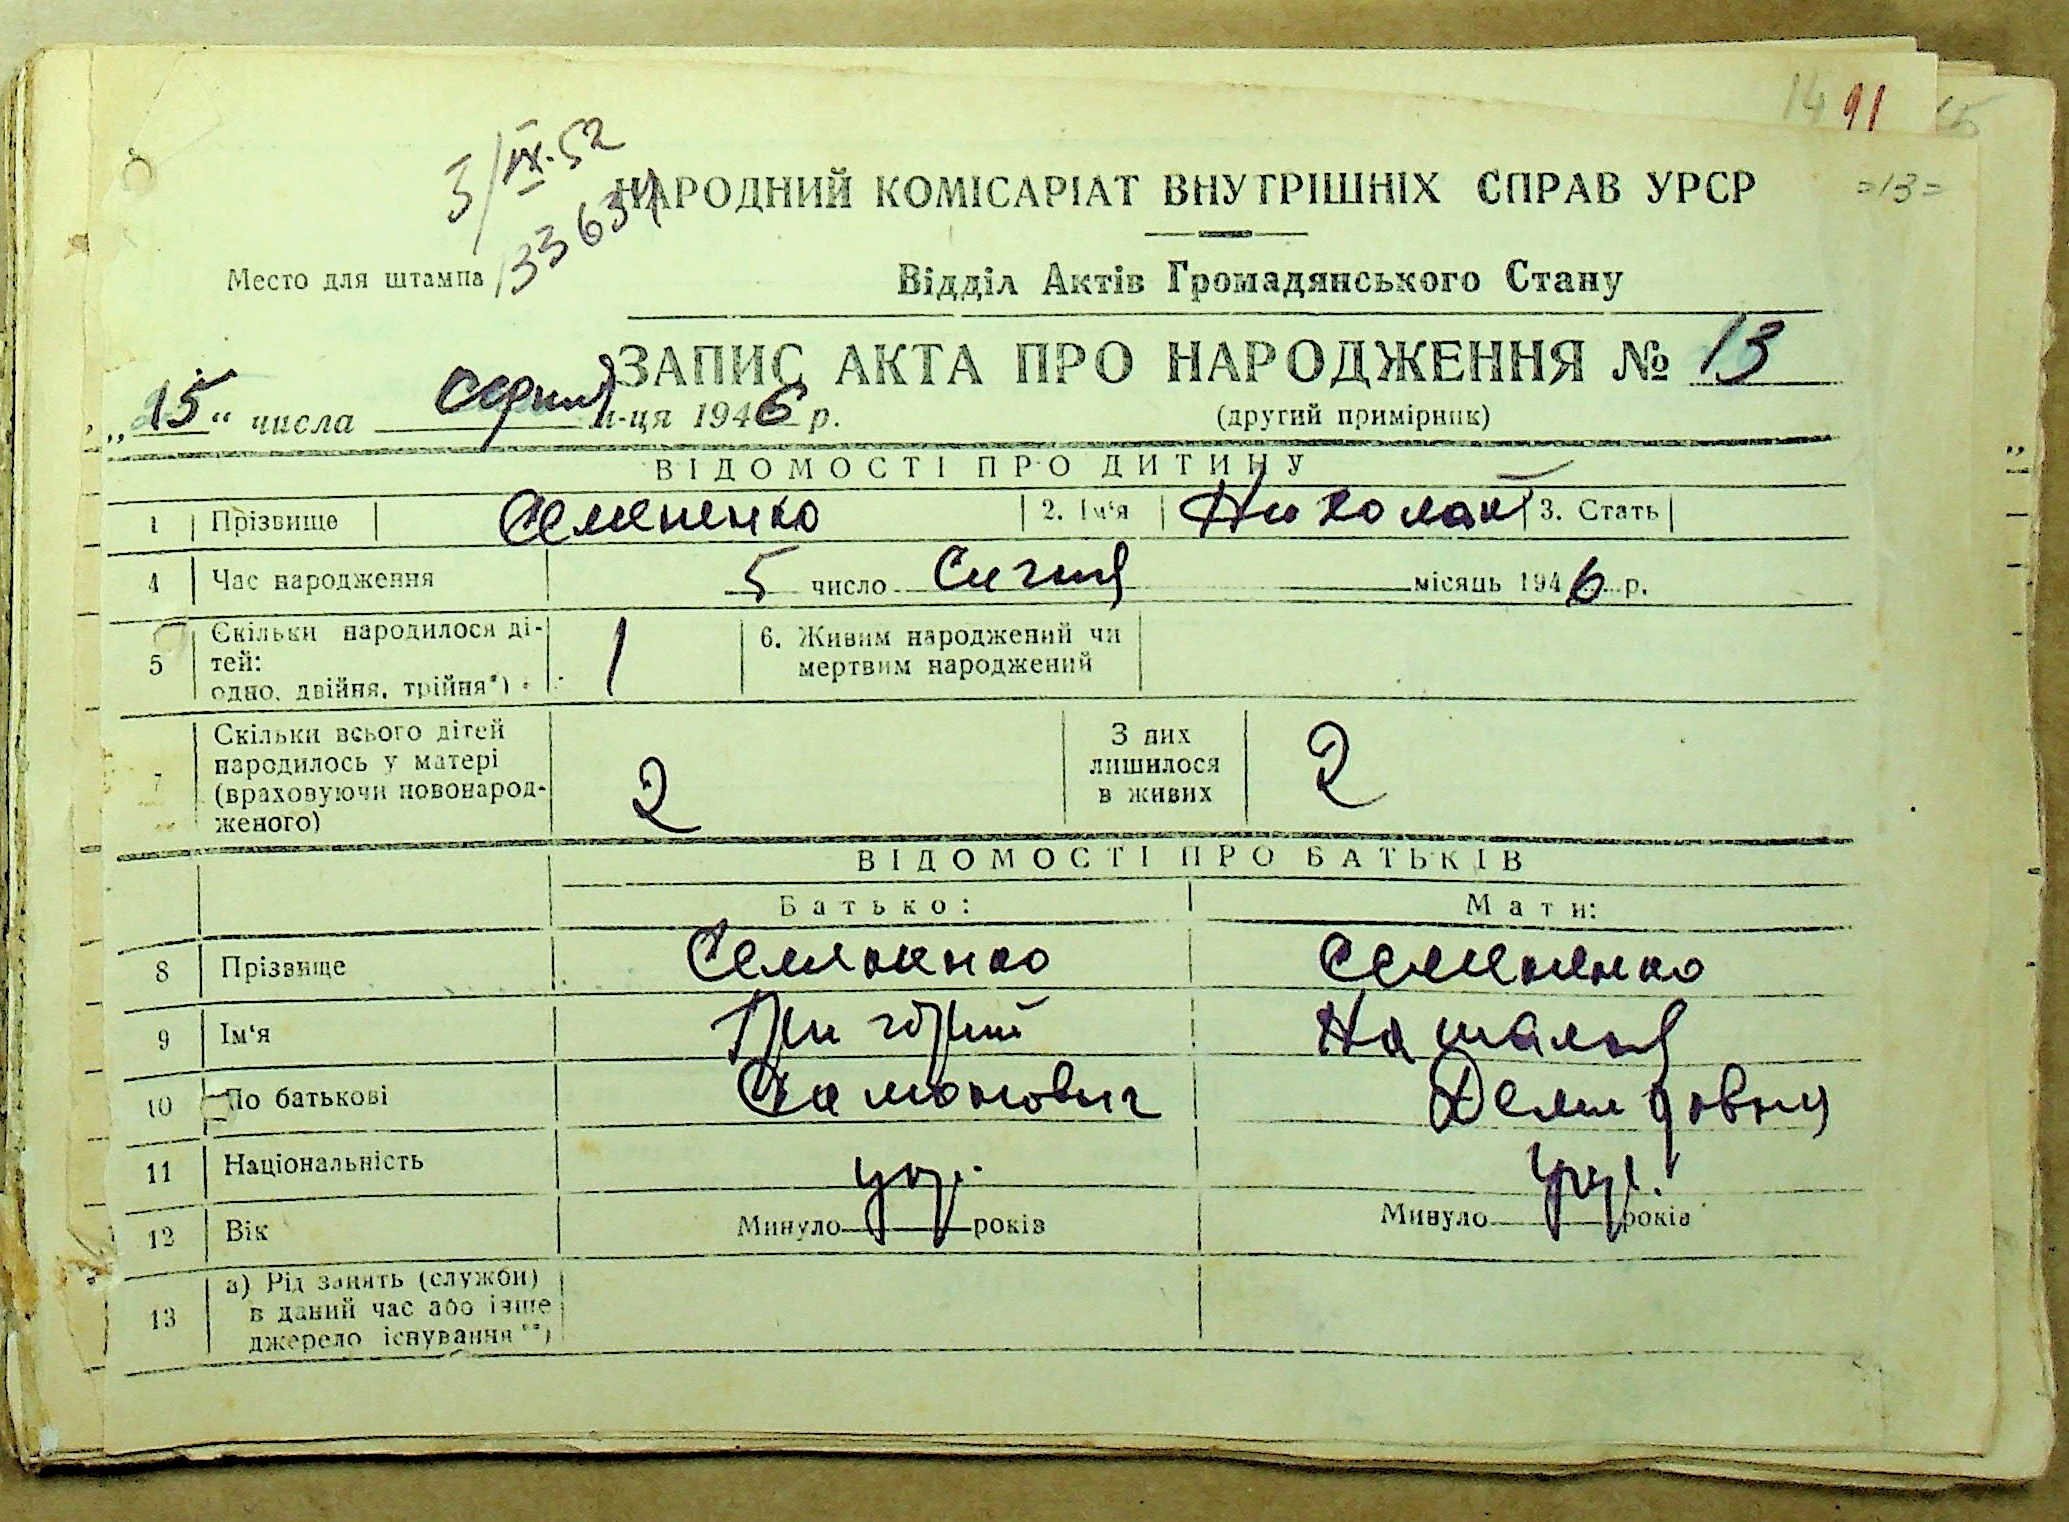 14 91
3/IX.52
НАРОДНИЙ КОМІСАРІАТ ВНУТРІШНІХ СПРАВ УРСР
=13=
133634
Место для штампа
Відділ Актів Громадянського Стану
ЗАПИС АКТА ПРО НАРОДЖЕННЯ № 13
„15“ числа серпня м-ця 1946 р.
(другий примірник)
ВІДОМОСТІ ПРО ДИТИНУ
1 Прізвище Семененко 2. Ім'я Николай 3. Стать
4 Час народження 5 число Сичня місяць 1946 р.
5 Скільки народилося ді-
тей:
одно, двійня, трійня*) 1
6. Живим народжений чи
мертвим народжений
7 Скільки всього дітей
народилось у матері
(враховуючи новонарод-
женого) 2
З них
лишилося
в живих 2
ВІДОМОСТІ ПРО БАТЬКІВ
Батько: Мати:
8 Прізвище Семененко Семененко
9 Ім'я Григорий Наталия
10 По батькові Самонович Демидовна
11 Національність укр. укр.
12 Вік Минуло років Минуло років
13 а) Рід занять (служби)
в даний час або інше
джерело існування**)